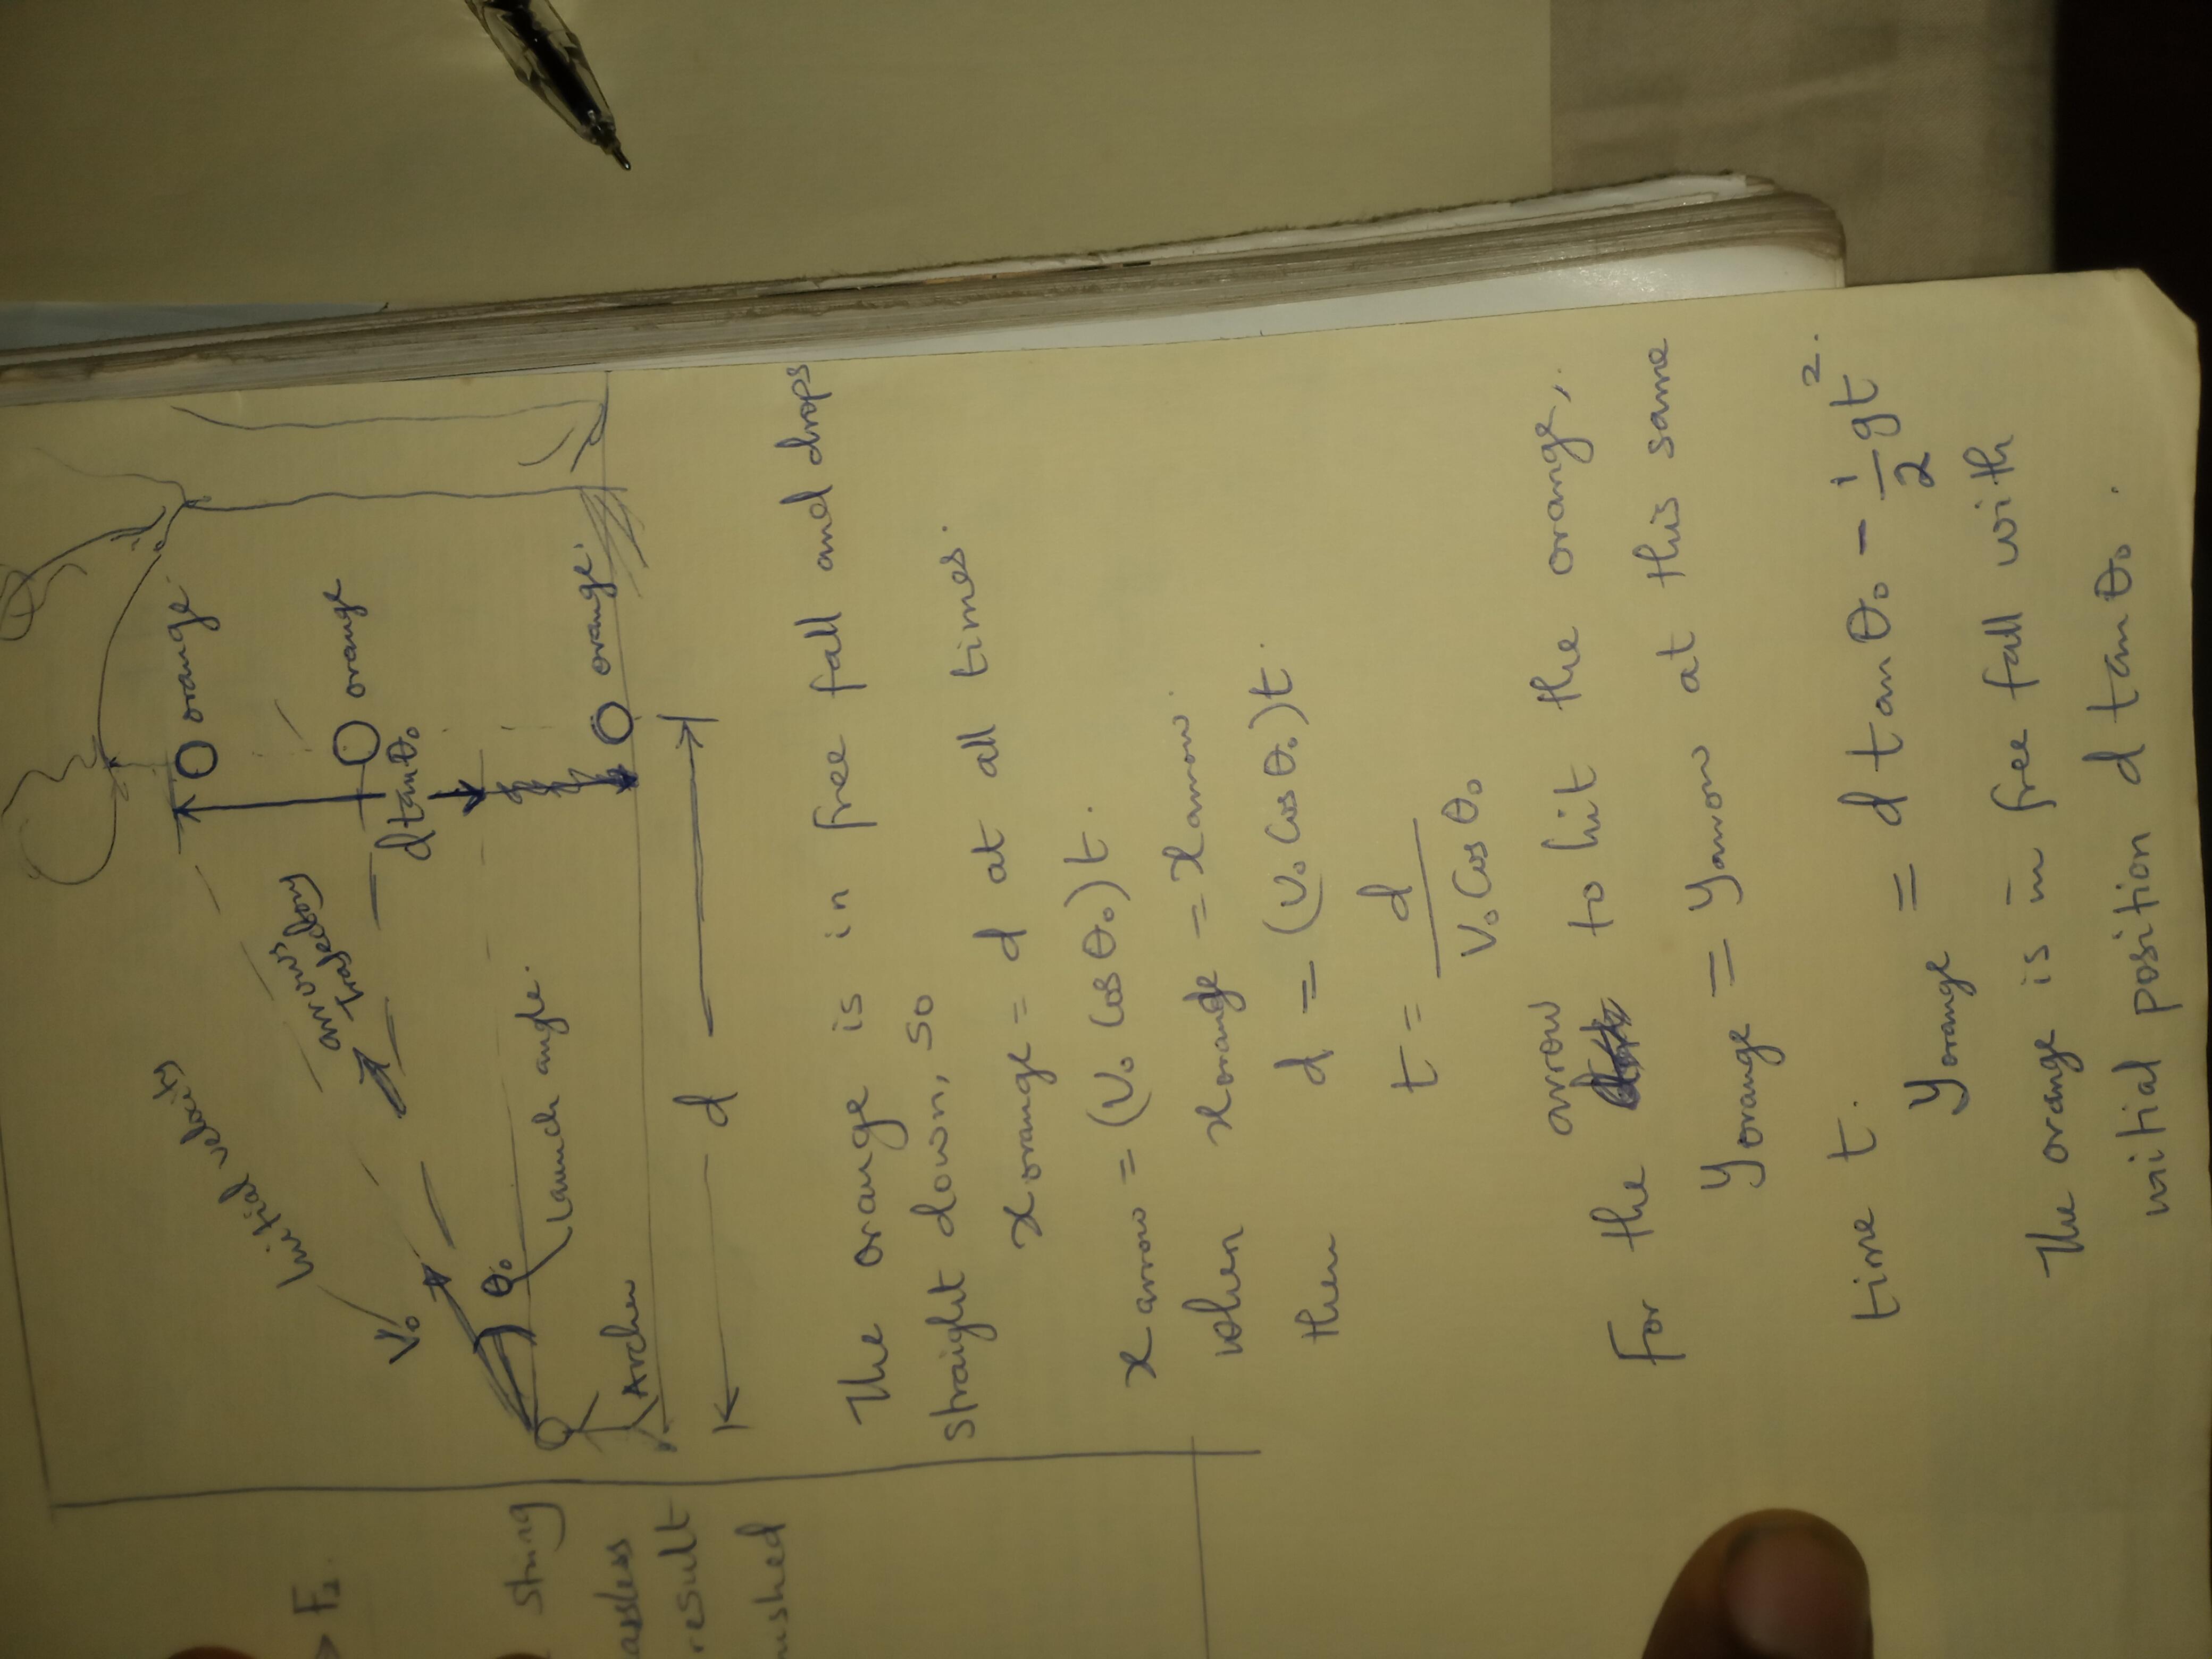 orange
orange
orange
d tanθ₀
Initial velocity
arrow's
Trajectory
V₀
θ₀
Launch angle.
Archer
d
The orange is in free fall and drops
straight down, so
x orange = d at all times.
x arrow = (V₀ Cos θ₀)t.
when x orange = x arrow
then d = (V₀ Cos θ₀)t
t = d / V₀ Cos θ₀
For the arrow to hit the orange,
y orange = y arrow at this same
time t.
y orange = d tan θ₀ - 1/2 gt².
The orange is in free fall with
initial position d tan θ₀.
> F₂.
string
result